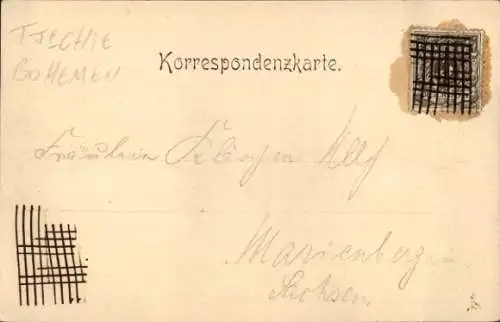 TSCHIE
BOHEMEN
Korrespondenzkarte.
Fräulein
Marienberg
Sachsen